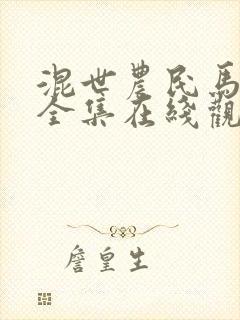 混世農民馬
全集在綫觀
詹皇生